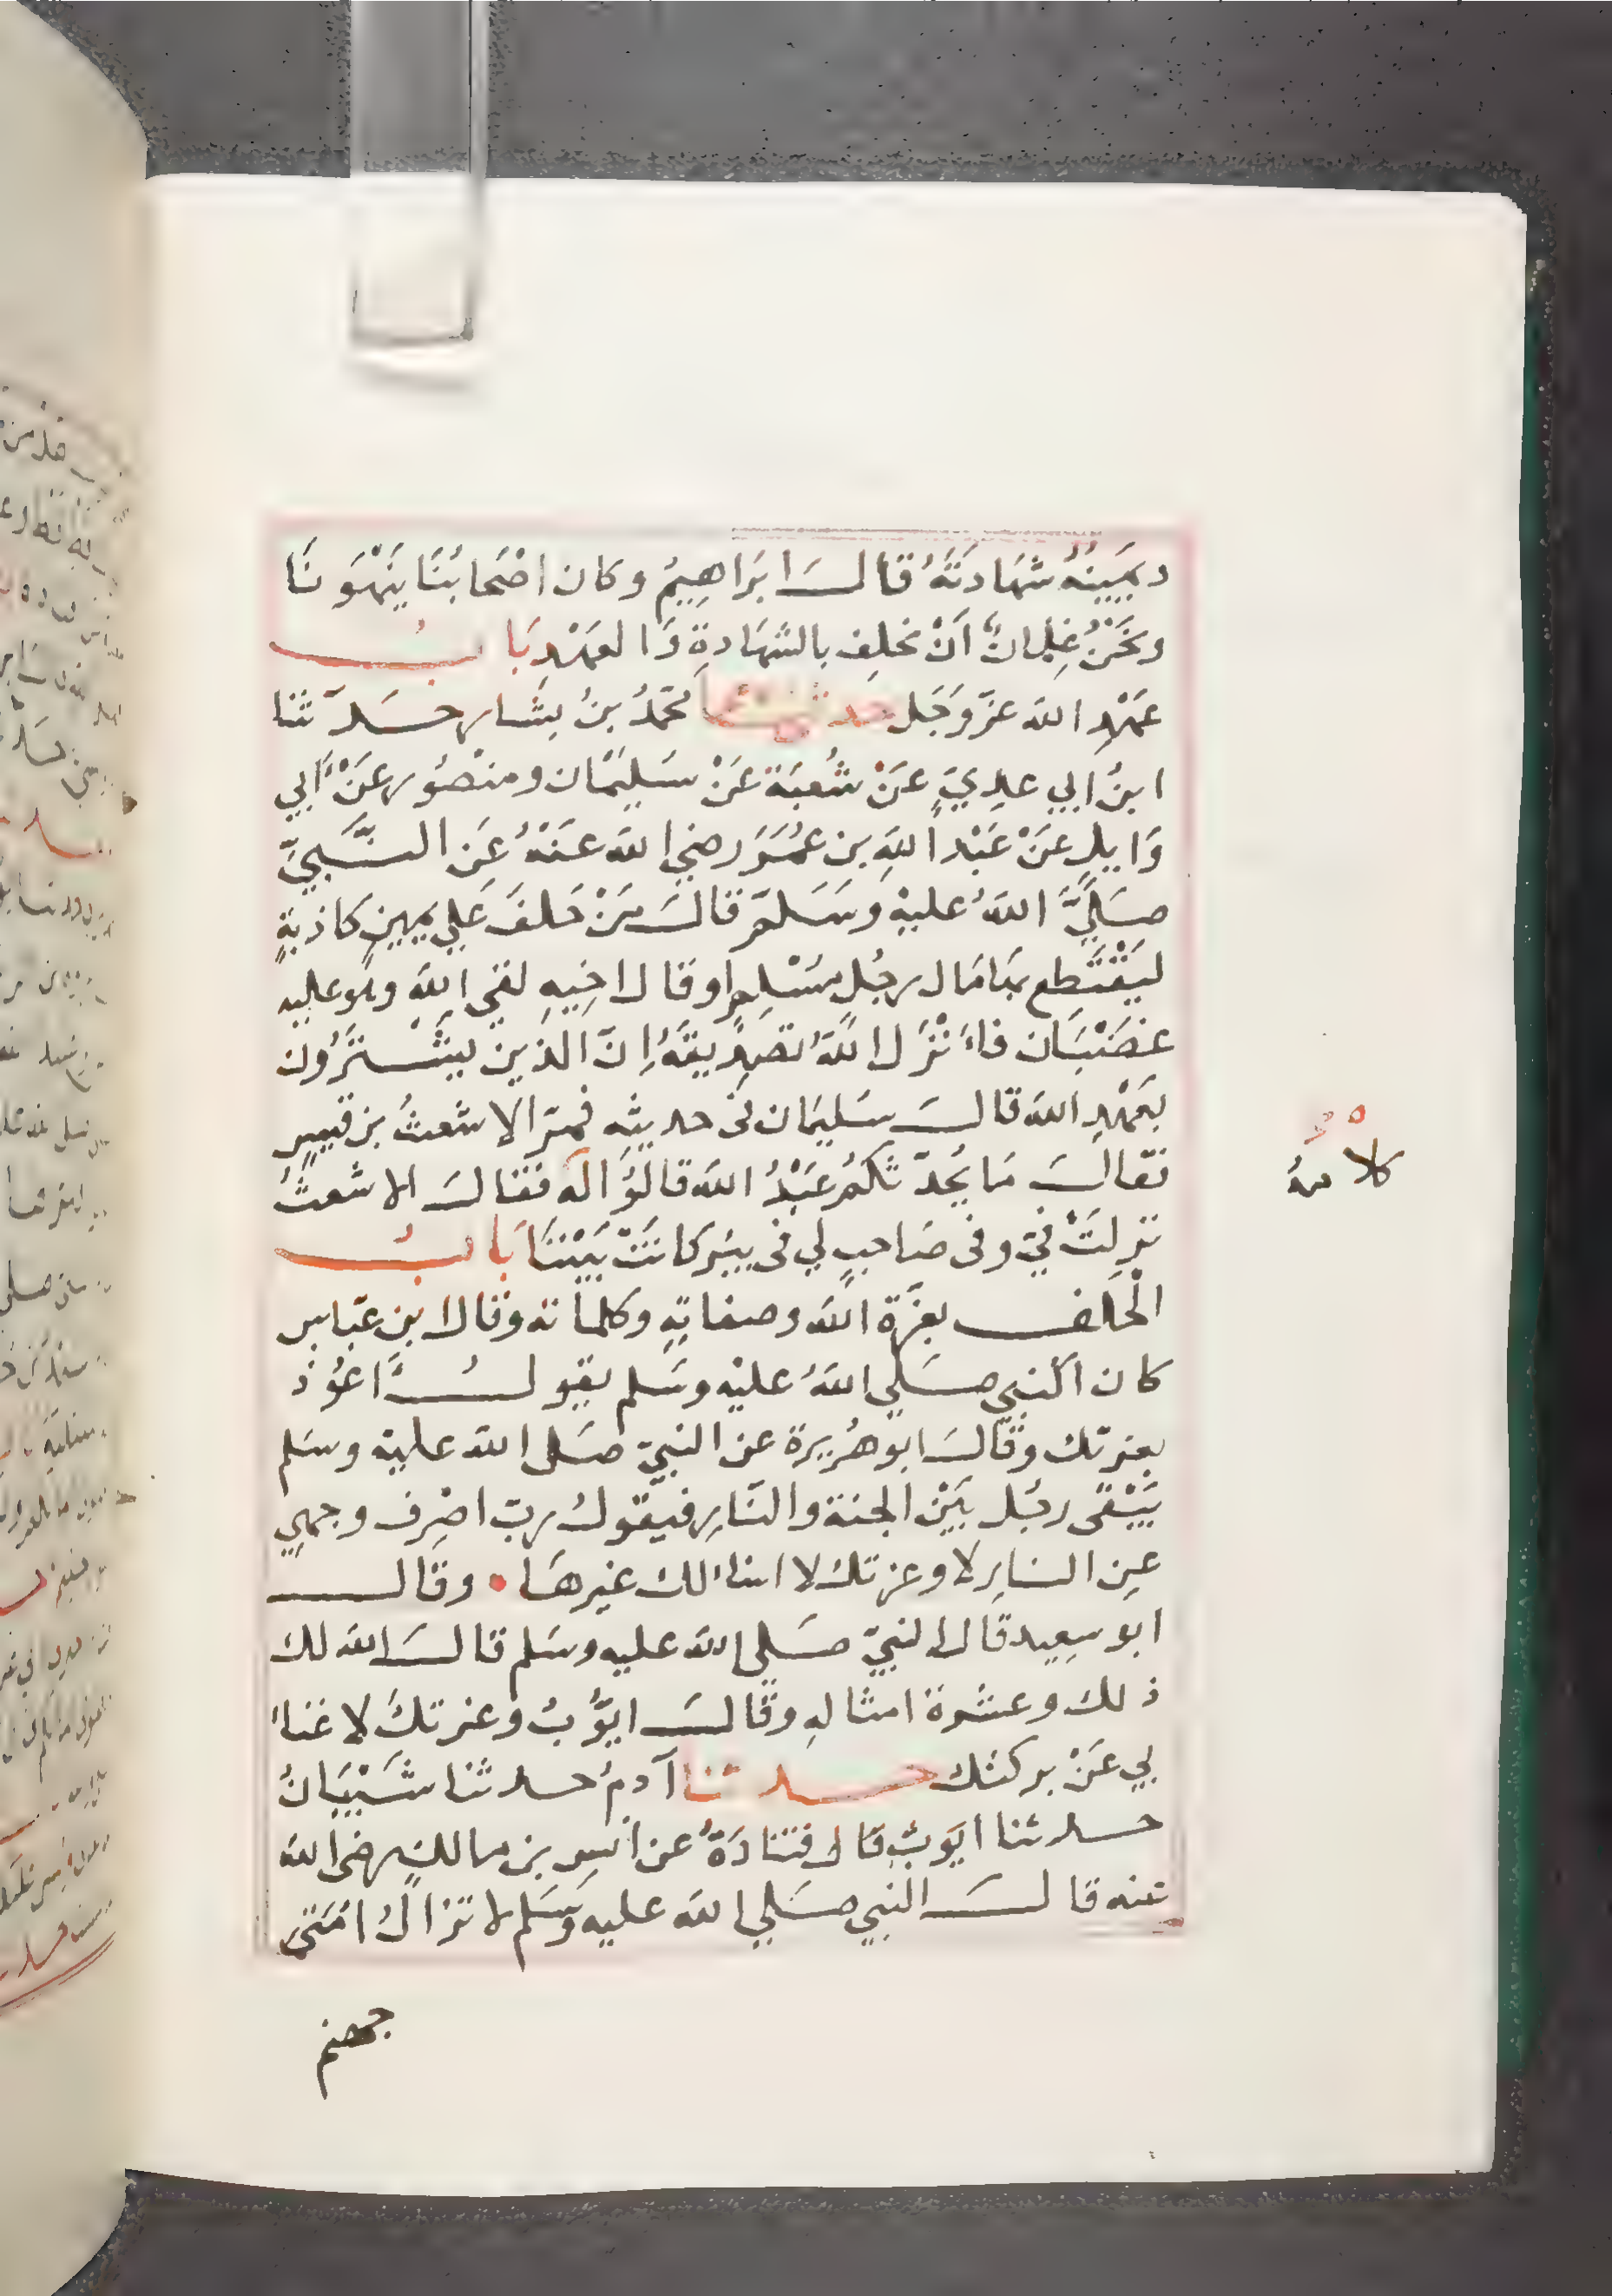 ويمينه شهادته قال ابراهيم وكان اصحابنا ينهونا
ونحن غلمان ان نحلف بالشهادة والعهد باب
عهد الله عز وجل حدثنا محمد بن بشار حدثنا
ابن ابي عدي عن شعبة عن سليمان ومنصور عن ابي
وايل عن عبد الله بن عمر رضي الله عنه عن النبي
صلي الله عليه وسلم قال من حلف علي يمين كاذبة
ليقتطع بها مال رجل مسلم او قال اخيه لقي الله وهو عليه
غضبان فانزل الله تصديقه ان الذين يشترون
بعهد الله قال سليمان في حديثه فمر الاشعث بن قيس
فقال ما يحدثكم عبد الله قالوا له فقال الاشعث
نزلت في وفي صاحب لي في بير كانت بيننا باب
الحلف بعزة الله وصفاته وكلماته وقال ابن عباس
كان النبي صلي الله عليه وسلم يقول اعوذ
بعزتك وقال ابو هريرة عن النبي صلى الله عليه وسلم
يبقى رجل بين الجنة والنار فيقول رب اصرف وجهي
عن النار لا وعزتك لا اسالك غيرها • وقال
ابو سعيد قال النبي صلي الله عليه وسلم قال الله لك
ذلك وعشرة امثاله وقال ايوب وعزتك لا غناء
بي عن بركتك حدثنا آدم حدثنا شيبان
حدثنا ايوب قال قتادة عن انس بن مالك رضي الله
عنه قال النبي صلي الله عليه وسلم لا تزال امتي
جهنم